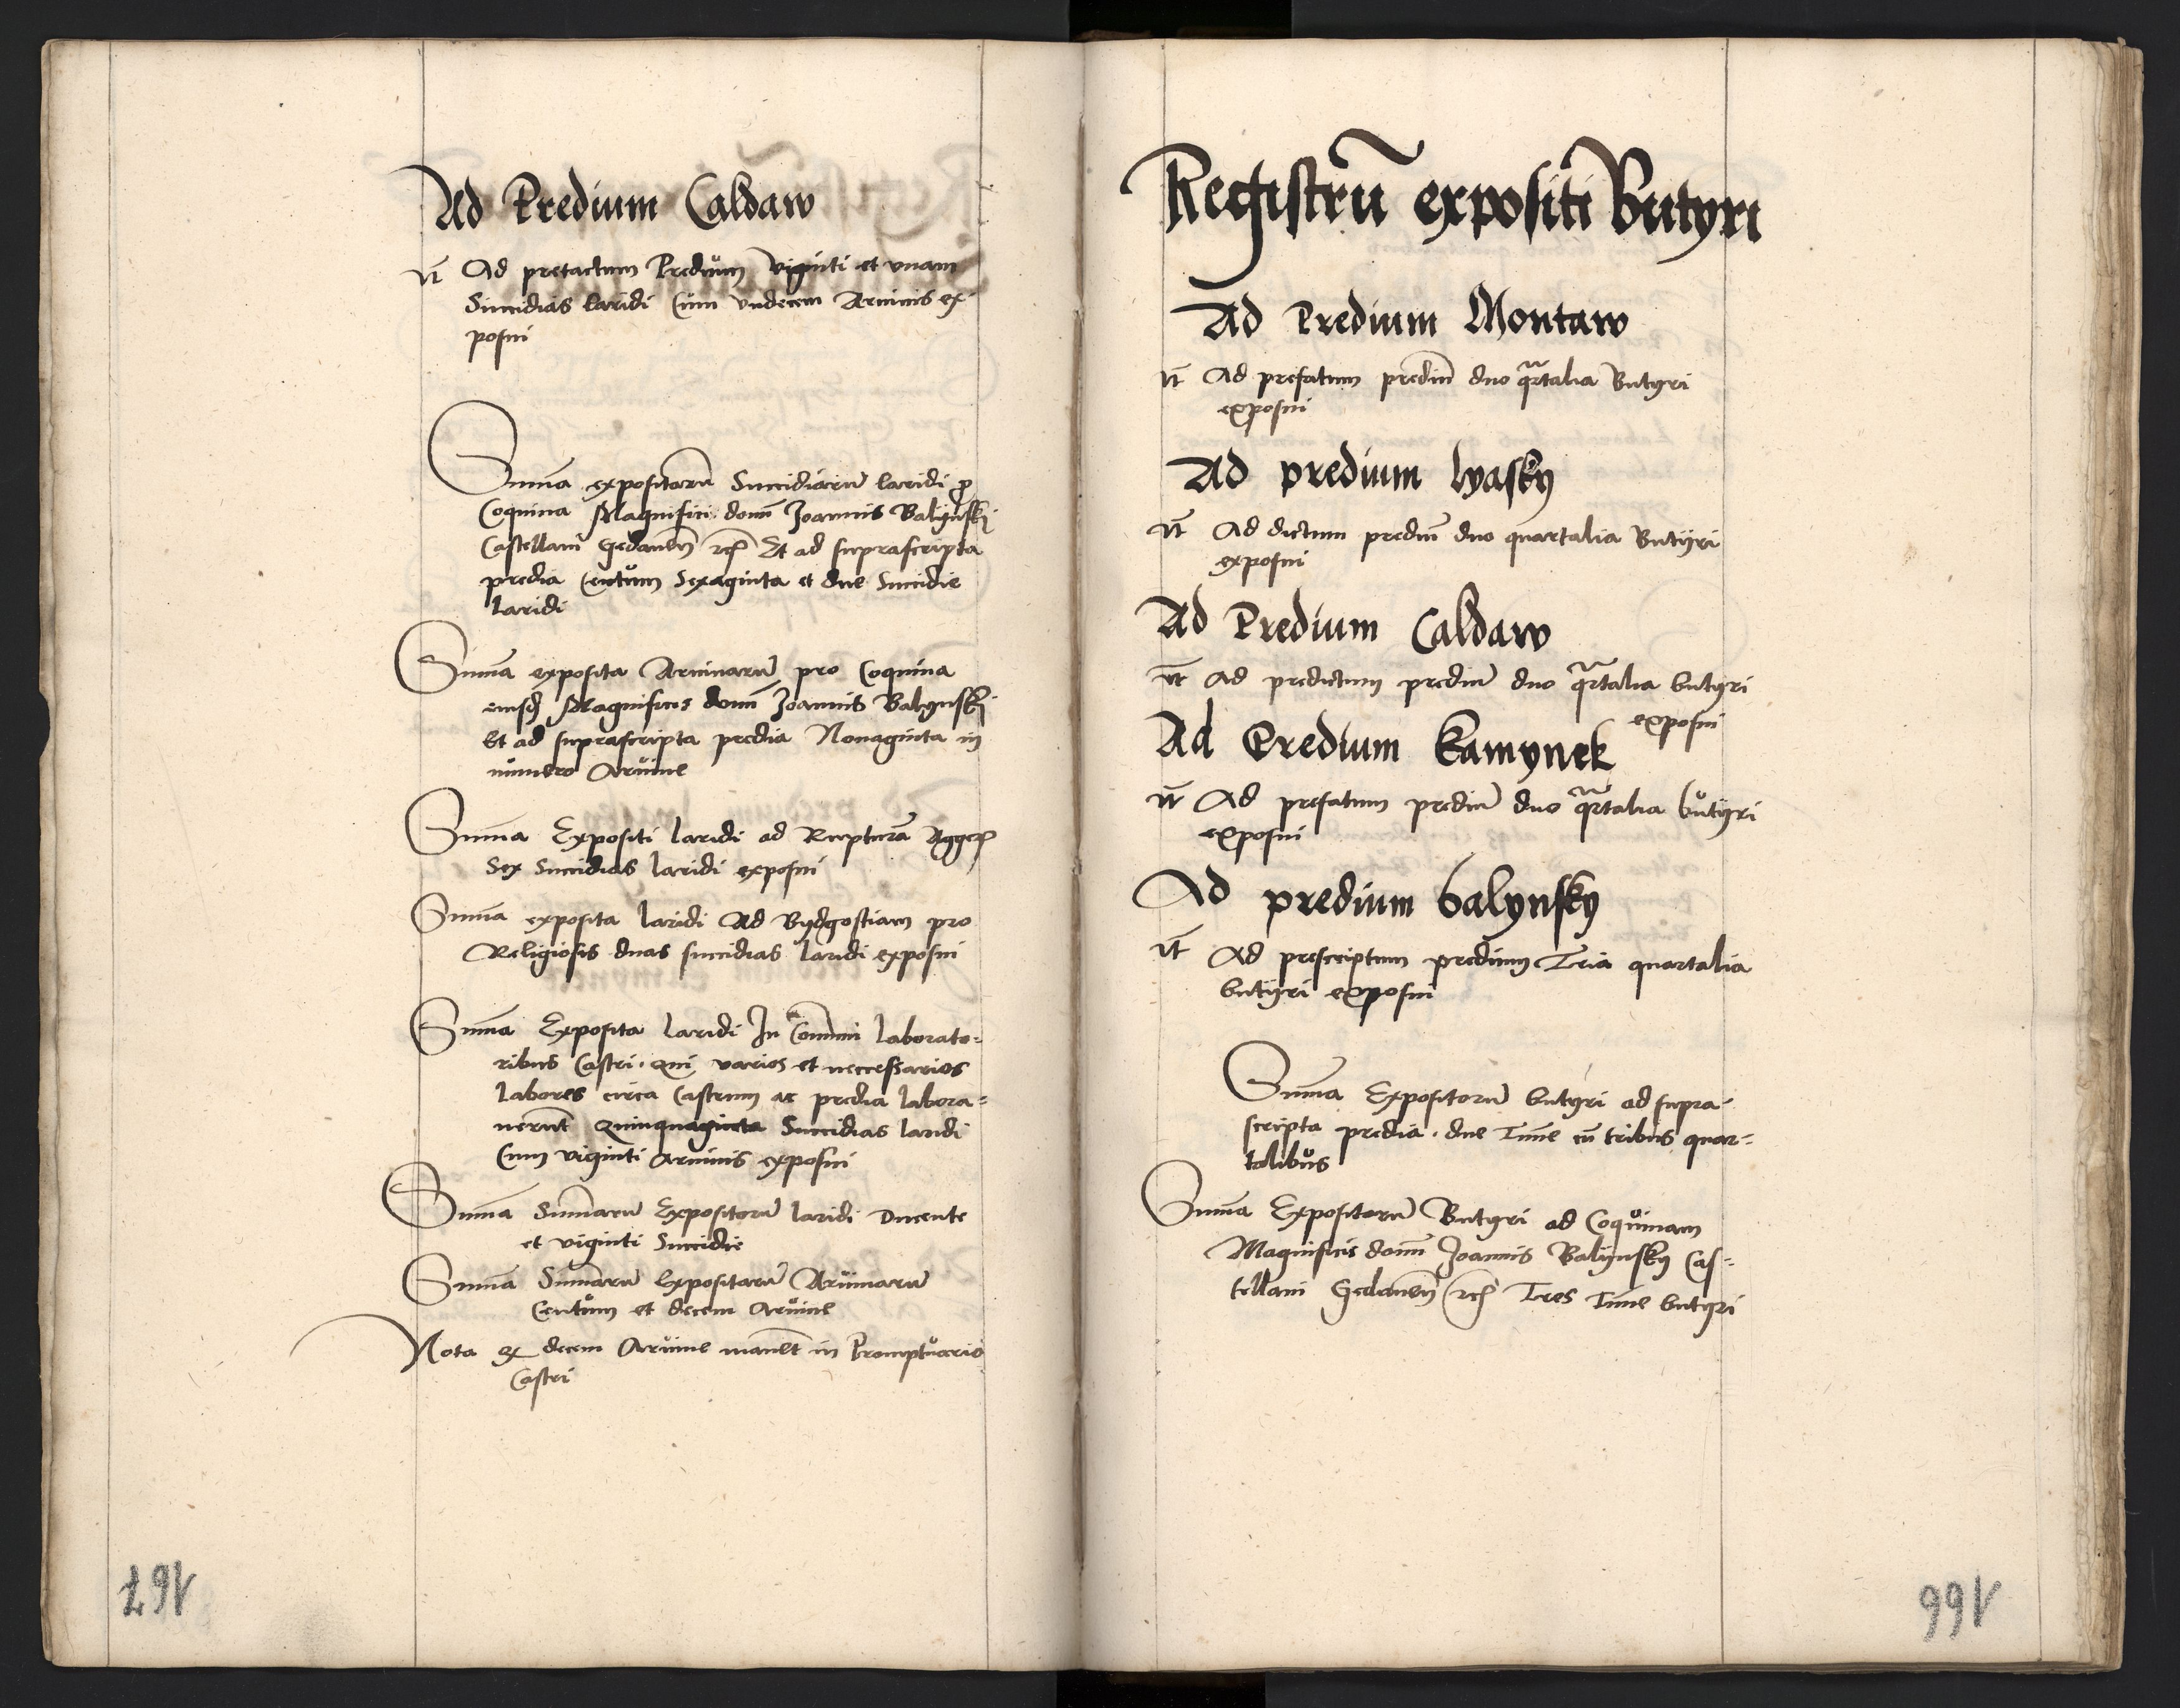 Ad Predium Caldaw
It Ad pretactum Predium viginti et vnam
Succidias laridi Cum vndecem Aruinis ex
posui
Summa expositarū Succidiarū laridi pro
Coquina Magnifici domī Joannis Balynskj
Castellani Gedaneñ Et ad suprascripta
predia Centum Sexaginta et due Succidie
laridi
Summa exposita Aruinarū pro Coquina
eiusdē Magnificis domī Joannis Balynskj
Et ad suprascripta predia Nonaginta in
numero Aruine
Summa Expositi laridi ad Rupturā Agger
Sex Succidias laridi exposui
Summa exposita laridi Ad Bydgostiam pro
Religiosis duas succidias laridi exposui
Summa Exposita laridi In Communi laborato=
ribus Castri. Qui varios et necessarios
labores circa Castrum ac predia labora=
uerūt Quinquaginta Succidias laridi
Cum viginti Aruinis exposui
Summa Summarū Expositorū laridi Ducente
et viginti Succidie
Summa Summarū Expositarū Aruinarū
Centum et decem Aruine
Nota ex decem Aruine manēt in Promptuario
Castri
167
Registrū expositi Butyri
Ad Predium Montaw
It Ad prefatum prediū duo qrtalia Butyri
exposui
Ad predium lyasky
It Ad dictum prediū duo quartalia Butyri
exposui
Ad Predium Caldaw
It Ad predictum prediū duo qrtalia butyri
exposui
Ad Predium Kamynek
It Ad prefatum prediū duo qrtalia butyri
exposui
Ad predium balynsky
It Ad prescriptum predium Tria quartalia
butyri exposui
Summa Expositorū butyri ad supra
scripta predia. due Tune cū tribus quar=
talibus
Summa Expositorū Butyri ad Coquinam
Magnificis domī Joannis Balynsky Cas=
tellani Gedaneñ Tres Tune butyri
166